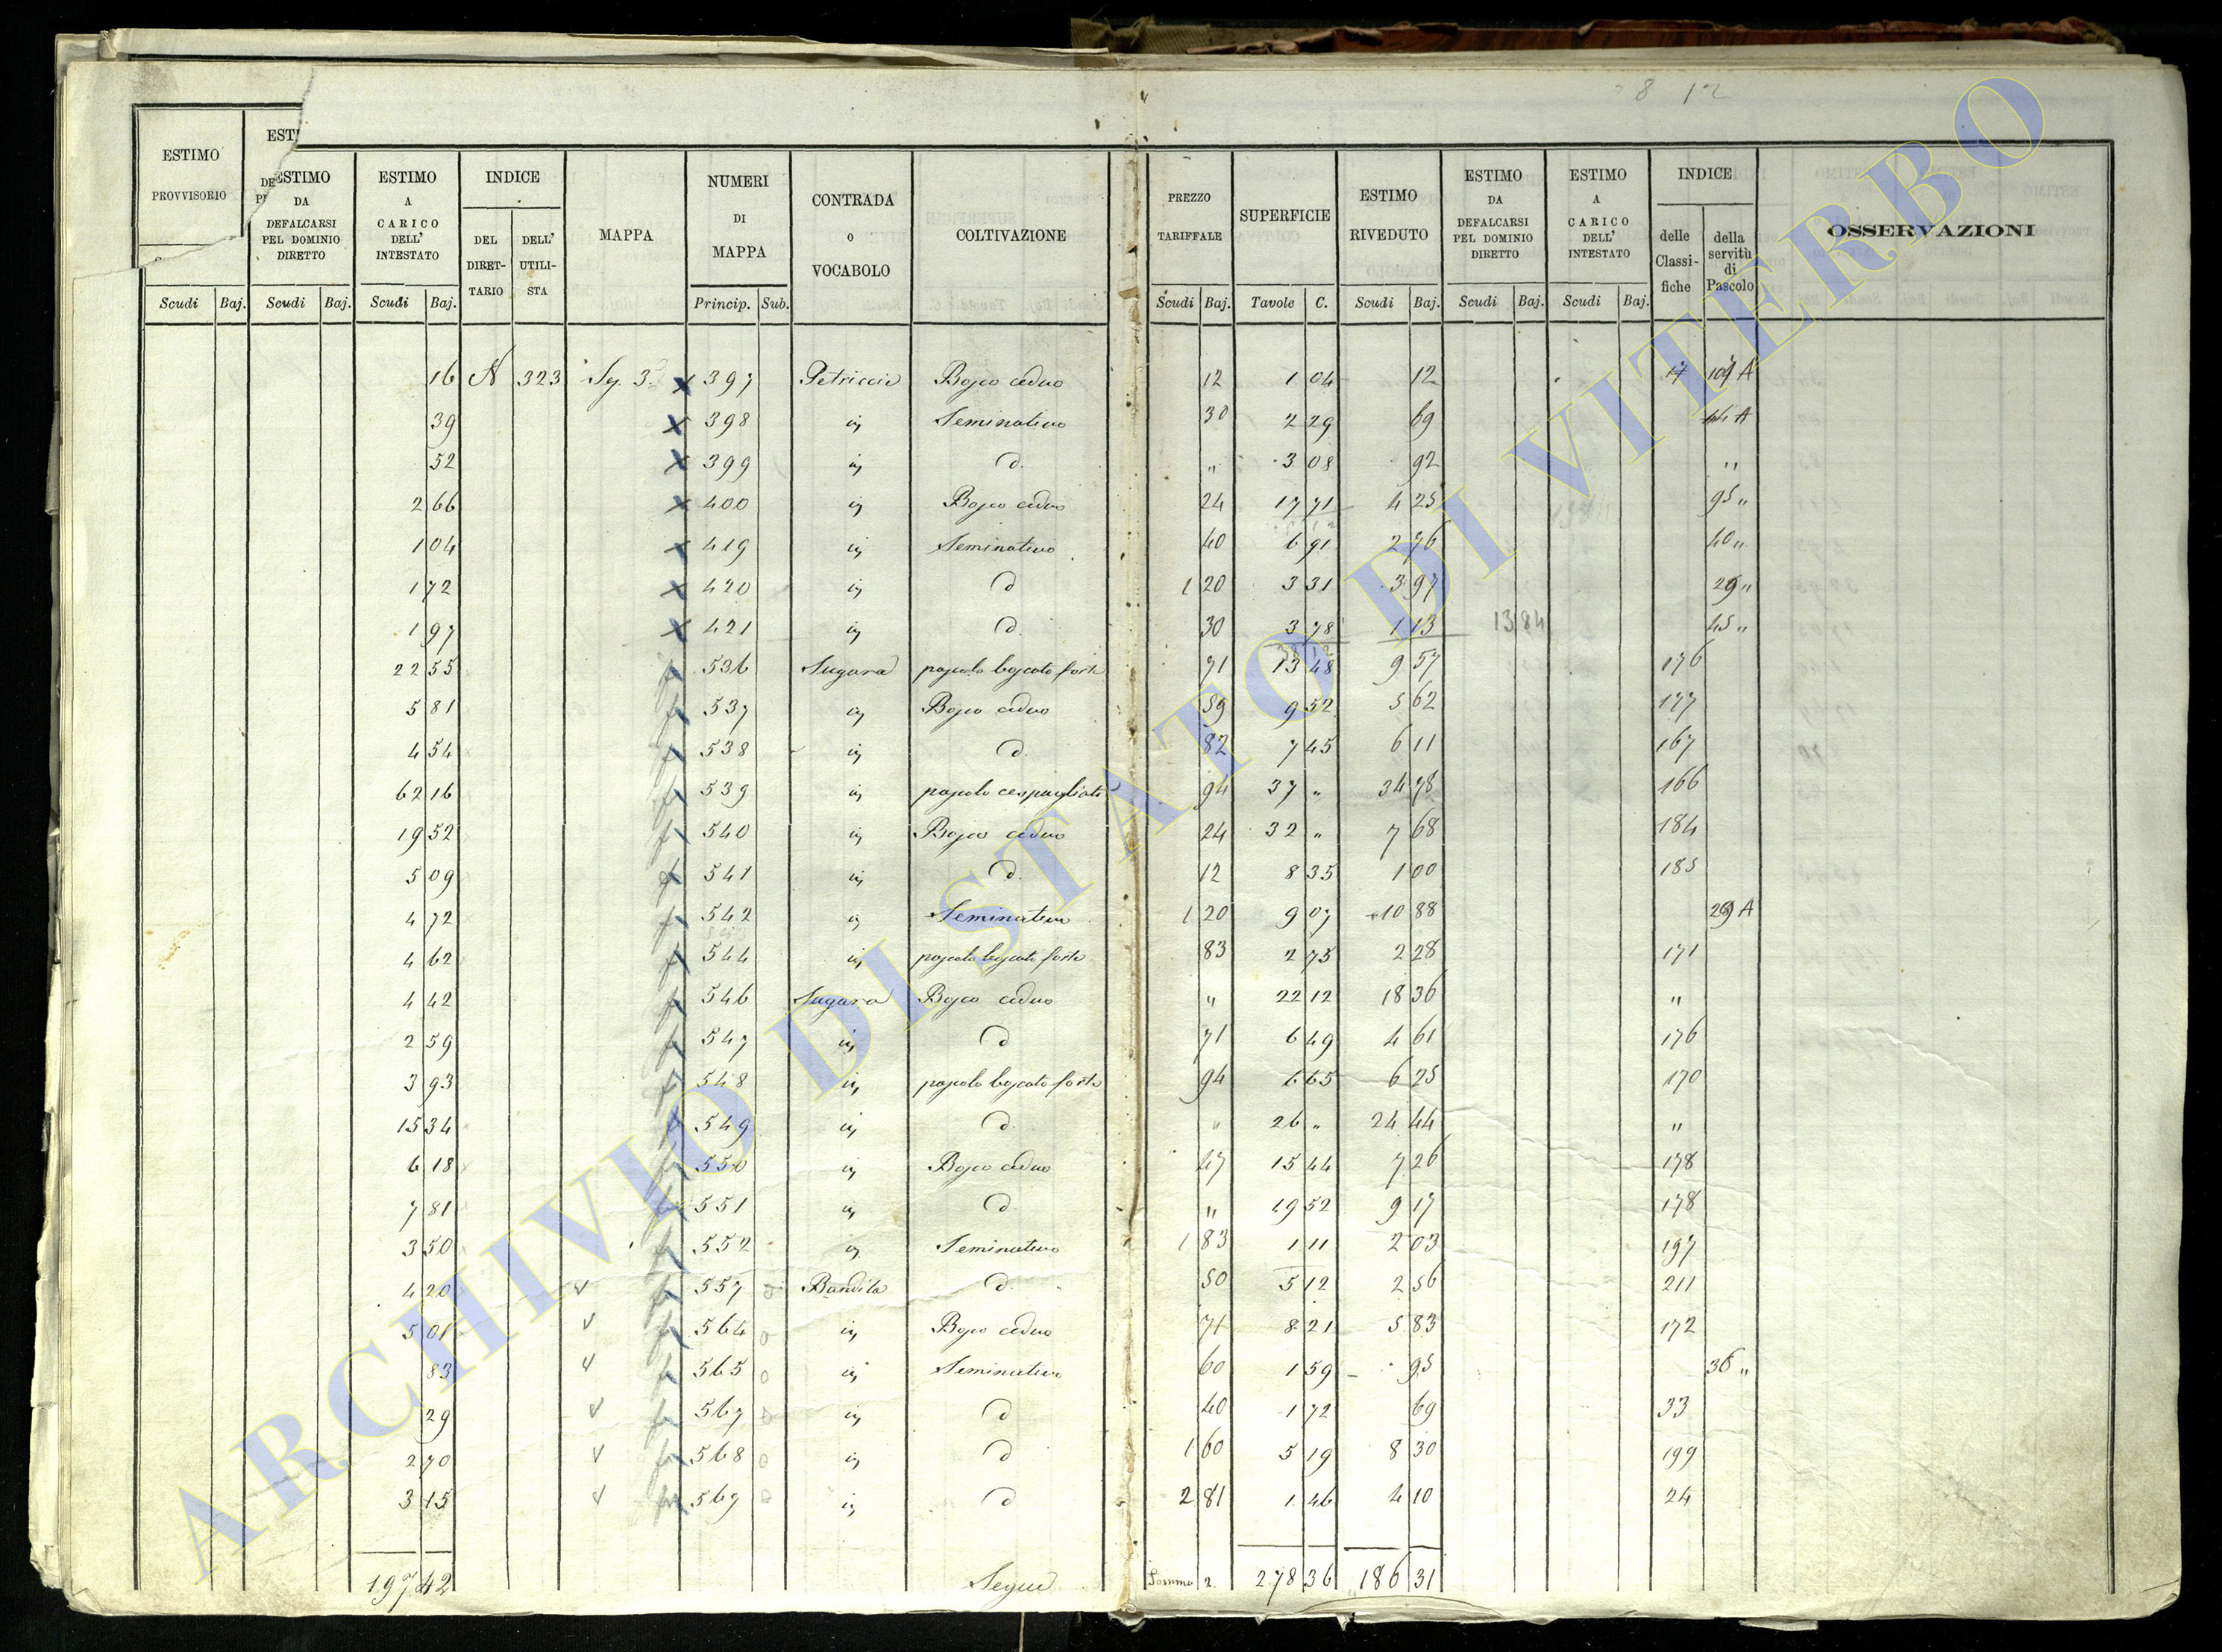 8 12
ESTIMO PROVVISORIO
EST
ESTIMO DA DEFALCARSI PEL DOMINIO DIRETTO
ESTIMO A CARICO DELL' INTESTATO
INDICE
DEL DIRETTARIO
DELL' UTILISTA
MAPPA
NUMERI DI MAPPA
CONTRADA o VOCABOLO
COLTIVAZIONE
PREZZO TARIFFALE
SUPERFICIE
ESTIMO RIVEDUTO
ESTIMO DA DEFALCARSI PEL DOMINIO DIRETTO
ESTIMO A CARICO DELL' INTESTATO
INDICE
delle Classifiche
della servitù di Pascolo
OSSERVAZIONI
Scudi Baj. Scudi Baj. Scudi Baj. Princip. Sub. Scudi Baj. Tavole C. Scudi Baj. Scudi Baj. Scudi Baj.
16 A 323 Sez. 3. x 397 Petriccio Bosco ceduo 12 1 04 12 17 A
39 x 398 id Seminativo 30 2 29 69 44 A
52 x 399 id d. " 3 08 92 "
2 66 x 400 id Bosco ceduo 24 17 71 4 25 95 "
1 04 x 419 id Seminativo 40 6 91 2 76 40 "
1 72 x 420 id d 1 20 3 31 3 97 29 "
1 97 x 421 id d. 30 3 78 1 13 13 84 45 "
22 55 536 Sugara pascolo boscato forte 71 13 48 9 57 176
5 81 537 id Bosco ceduo 59 9 52 5 62 177
4 54 538 id d. 82 7 45 6 11 167
62 16 539 id pascolo cespugliato 94 37 " 34 78 166
19 52 540 id Bosco ceduo 24 32 " 7 68 184
5 09 541 id d. 12 8 35 1 00 185
4 72 542 id Seminativo 1 20 9 07 10 88 29 A
4 62 544 id pascolo boscato forte 83 2 75 2 28 171
4 42 546 Sugara Bosco ceduo " 22 12 18 36 "
2 59 547 id d 71 6 49 4 61 176
3 93 548 id pascolo boscato forte 94 6 65 6 25 170
15 34 549 id d. " 26 " 24 44 "
6 18 550 id Bosco ceduo 47 15 44 7 26 178
7 81 551 id d " 19 52 9 17 178
3 50 552 id Seminativo 1 83 1 11 2 03 197
4 20 557 Bandita d. 50 5 12 2 56 211
5 01 564 0 id Bosco ceduo 71 8 21 5 83 172
83 565 0 id Seminativo 60 1 59 95 36 "
29 567 0 id d 40 1 72 69 33
2 70 568 0 id d 1 60 5 19 8 30 199
3 15 569 0 id d 2 81 1 46 4 10 24
197 42 Segue Somma 2. 278 36 186 31
ARCHIVIO DI STATO DI VITERBO